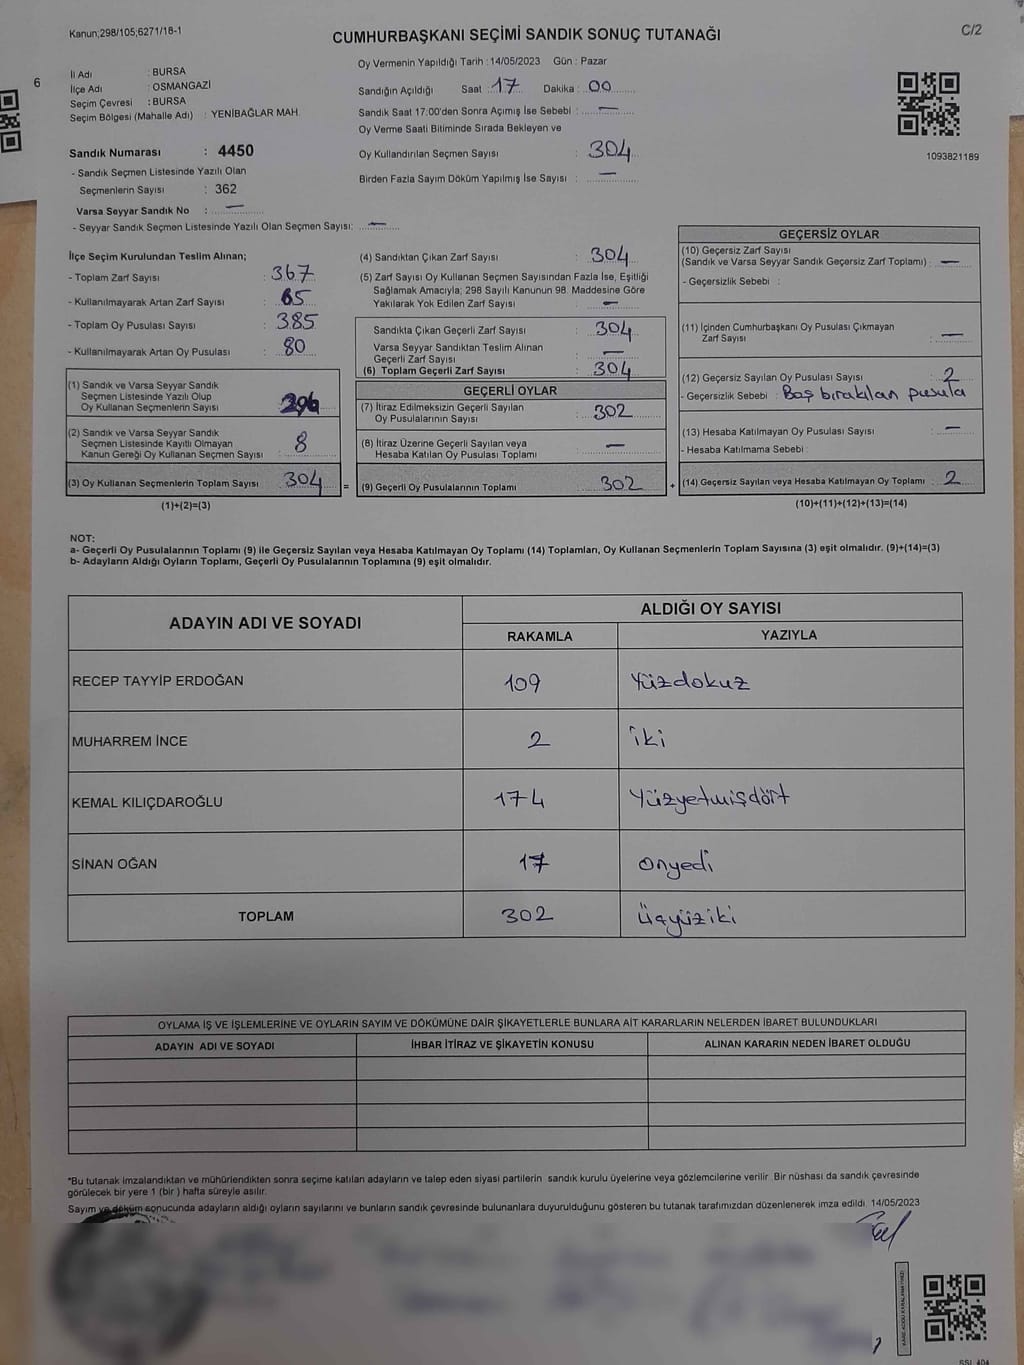 Kanun;298/105;6271/18-1
CUMHURBAŞKANI SEÇİMİ SANDIK SONUÇ TUTANAĞI
C/2
6
İl Adı : BURSA
İlçe Adı : OSMANGAZİ
Seçim Çevresi : BURSA
Seçim Bölgesi (Mahalle Adı) : YENİBAĞLAR MAH.
Sandık Numarası : 4450
- Sandık Seçmen Listesinde Yazılı Olan
Seçmenlerin Sayısı : 362
Varsa Seyyar Sandık No : —
- Seyyar Sandık Seçmen Listesinde Yazılı Olan Seçmen Sayısı: —
Oy Vermenin Yapıldığı Tarih : 14/05/2023 Gün : Pazar
Sandığın Açıldığı Saat : 17 Dakika : 00
Sandık Saat 17:00'den Sonra Açımış İse Sebebi : —
Oy Verme Saati Bitiminde Sırada Bekleyen ve
Oy Kullandırılan Seçmen Sayısı : 304
Birden Fazla Sayım Döküm Yapılmış İse Sayısı : —
1093821189
İlçe Seçim Kurulundan Teslim Alınan;
- Toplam Zarf Sayısı : 367
- Kullanılmayarak Artan Zarf Sayısı : 65
- Toplam Oy Pusulası Sayısı : 385
- Kullanılmayarak Artan Oy Pusulası : 80
(1) Sandık ve Varsa Seyyar Sandık
Seçmen Listesinde Yazılı Olup
Oy Kullanan Seçmenlerin Sayısı : 296
(2) Sandık ve Varsa Seyyar Sandık
Seçmen Listesinde Kayıtlı Olmayan
Kanun Gereği Oy Kullanan Seçmen Sayısı : 8
(3) Oy Kullanan Seçmenlerin Toplam Sayısı : 304 =
(1)+(2)=(3)
(4) Sandıktan Çıkan Zarf Sayısı : 304
(5) Zarf Sayısı Oy Kullanan Seçmen Sayısından Fazla İse, Eşitliği
Sağlamak Amacıyla; 298 Sayılı Kanunun 98. Maddesine Göre
Yakılarak Yok Edilen Zarf Sayısı : —
Sandıkta Çıkan Geçerli Zarf Sayısı : 304
Varsa Seyyar Sandıktan Teslim Alınan
Geçerli Zarf Sayısı : —
(6) Toplam Geçerli Zarf Sayısı : 304
GEÇERLİ OYLAR
(7) İtiraz Edilmeksizin Geçerli Sayılan
Oy Pusulalarının Sayısı : 302
(8) İtiraz Üzerine Geçerli Sayılan veya
Hesaba Katılan Oy Pusulası Toplamı : —
(9) Geçerli Oy Pusulalarının Toplamı : 302 +
GEÇERSİZ OYLAR
(10) Geçersiz Zarf Sayısı
(Sandık ve Varsa Seyyar Sandık Geçersiz Zarf Toplamı) : —
- Geçersizlik Sebebi :
(11) İçinden Cumhurbaşkanı Oy Pusulası Çıkmayan
Zarf Sayısı : —
(12) Geçersiz Sayılan Oy Pusulası Sayısı : 2
- Geçersizlik Sebebi : Boş bırakılan pusula
(13) Hesaba Katılmayan Oy Pusulası Sayısı : —
- Hesaba Katılmama Sebebi :
(14) Geçersiz Sayılan veya Hesaba Katılmayan Oy Toplamı : 2
(10)+(11)+(12)+(13)=(14)
NOT:
a- Geçerli Oy Pusulalarının Toplamı (9) ile Geçersiz Sayılan veya Hesaba Katılmayan Oy Toplamı (14) Toplamları, Oy Kullanan Seçmenlerin Toplam Sayısına (3) eşit olmalıdır. (9)+(14)=(3)
b- Adayların Aldığı Oyların Toplamı, Geçerli Oy Pusulalarının Toplamına (9) eşit olmalıdır.
ADAYIN ADI VE SOYADI
ALDIĞI OY SAYISI
RAKAMLA YAZIYLA
RECEP TAYYİP ERDOĞAN 109 Yüzdokuz
MUHARREM İNCE 2 iki
KEMAL KILIÇDAROĞLU 174 Yüzyetmişdört
SİNAN OĞAN 17 onyedi
TOPLAM 302 Üçyüziki
OYLAMA İŞ VE İŞLEMLERİNE VE OYLARIN SAYIM VE DÖKÜMÜNE DAİR ŞİKAYETLERLE BUNLARA AİT KARARLARIN NELERDEN İBARET BULUNDUKLARI
ADAYIN ADI VE SOYADI İHBAR İTİRAZ VE ŞİKAYETİN KONUSU ALINAN KARARIN NEDEN İBARET OLDUĞU
*Bu tutanak imzalandıktan ve mühürlendikten sonra seçime katılan adayların ve talep eden siyasi partilerin sandık kurulu üyelerine veya gözlemcilerine verilir. Bir nüshası da sandık çevresinde
görülecek bir yere 1 (bir) hafta süreyle asılır.
Sayım ve döküm sonucunda adayların aldığı oyların sayılarını ve bunların sandık çevresinde bulunanlara duyurulduğunu gösteren bu tutanak tarafımızdan düzenlenerek imza edildi. 14/05/2023